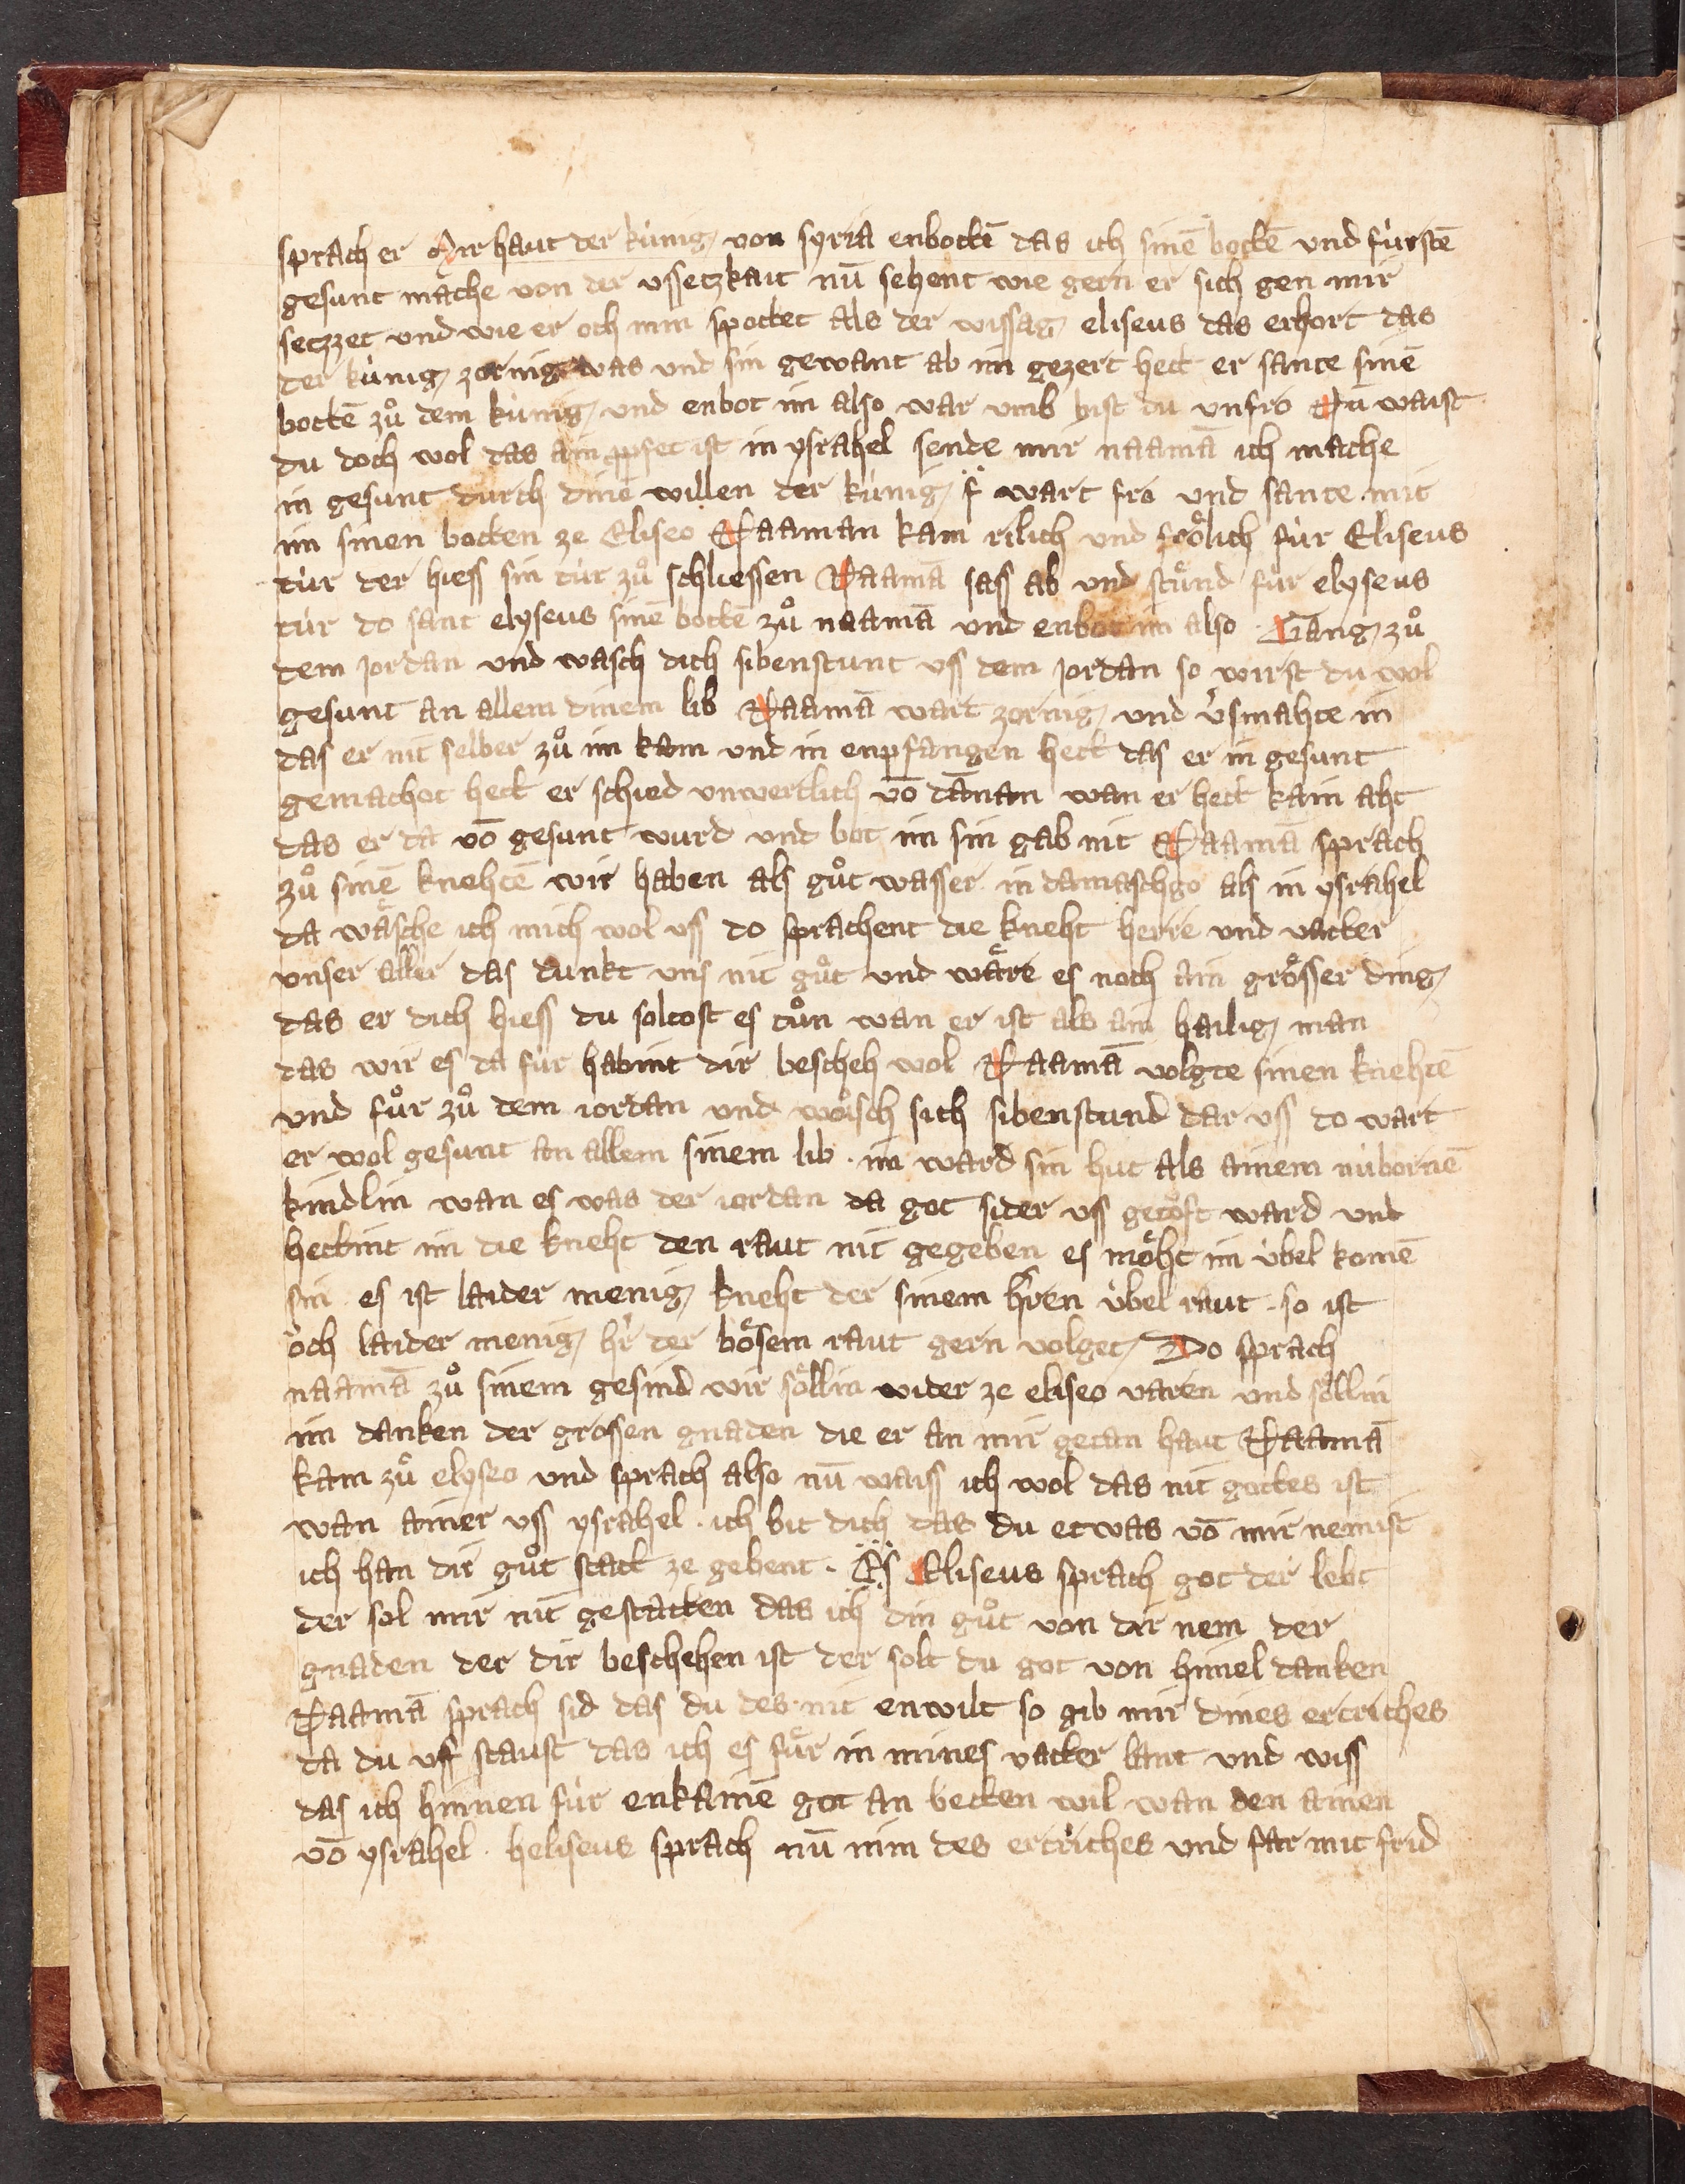 sprach er Mir haut der künig von syria enbottē das ich sinē bottē und fürstē
gesunt mache von der ussetzkait nū sehent wie gern er sich gen mir
setzzet und wie er och min spottet als der wissag eliseus das erhort das
der künig zornig was und sin gewant ab im gezert hett er sante sinē
bottē zů dem künig und enbot im also war umb bist du unfro Nu waist
du doch wol das ain ppfet ist in ysrahel sende mir naamā ich mache
in gesunt durch dinē willen der künig wart fro und sante mit
im sinen botten ze Eliseo Naaman kam rilich und frölich für Eliseus
tür der hiess sin tür zů schliessen Naamā sass ab und stůnd für elyseus
tür do sant elyseus sinē bottē zů naamā und enbot im also Gang zů
dem jordan und wasch dich sibenstunt uss dem jordan so wirst du wol
gesunt an allem dinem lib Naamā wart zornig und v̓smahte in
das er nit selber zů im kam und in enpfangen hett das er in gesunt
gemachot hett er schied unwertlich vō dānan wan er hett kain aht
das er da vō gesunt wurd und bot im sin gab nit Naamā sprach
zů sinē knehtē wir haben als gůt wasser in damaschgo als in ysrahel
da wäsche ich mich wol uss do sprachent die kneht herre und vatter
unser aller das dunkt uns nit gůt und wäre es noch ain grösser ding
das er dich hiess du soltost es tůn wan er ist als ain hailig man
das wir es da für habint dir bescheh wol Naamā volgte sinen knehtē
und fůr zů dem iordan und wůsch sich sibenstund dar uss do wart
er wol gesunt an allem sinem lib · im ward sin hut als ainem nübornē
kindlin wan es was der iordan da got sider uss getöft ward und
hettint im die kneht den raut nit gegeben es möht im übel komē
sin · es ist laider menig kneht der sinem hren übel raut · so ist
och laider menig hr der bösem raut gern volget Do sprach
naamā zů sinem gesind wir söllin wider ze eliseo varen und söllin
im danken der grossen gnaden die er an mir getan haut Naamā
kam zů elyseo und sprach also nū waiss ich wol das nit gottes ist
wan ainer uss ysrahel · ich bit dich das du etwas vō mir nemist
ich han dir gůt statt ze gebent · Eliseus sprach got der lebt
der sol mir nit gestatten das ich din gůt von dir nem der
gnaden der dir beschehen ist der solt du got von himel danken
Naamā sprach sid das du des nit enwilt so gib mir dines ertriches
da du uff staust das ich es fůr in mines vatter lant und wiss
das ich hinnen für enkainē got an betten wil wan den ainen
vō ysrahel · heliseus sprach nū nim des ertriches und far mit frid